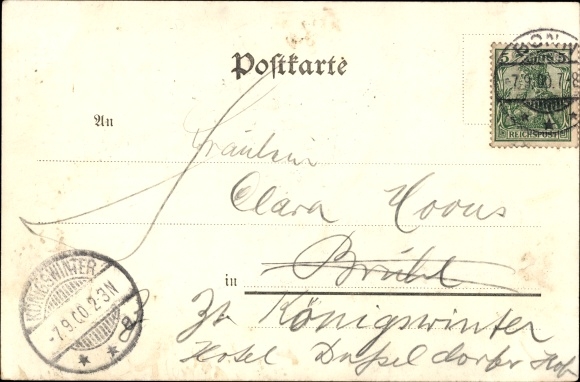 Postkarte
BONN
7.9.00.7-8
5
REICHSPOST
An
Fräulein
Clara Hovus
in Brühl
Zt. Königswinter
Hotel Düsseldorfer Hof
KÖNIGSWINTER
-7.9.00 2-3N